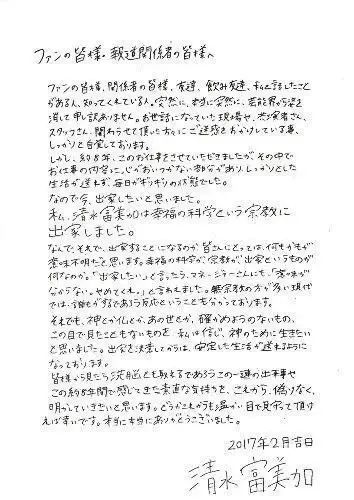 ファンの皆様・報道関係者の皆様へ
ファンの皆様、関係者の皆様、友達、飲み友達、私と話したこと
がある人、知ってくれている人。突然に、本当に突然に、芸能界から姿を
消して申し訳ありません。お世話になっていた現場や、共演者さん、
スタッフさん、関わらせて頂いた方々にご迷惑をおかけしている事、
しっかりと自覚しております。
しかし、約8年、このお仕事をさせていただきましたが、その中で
お仕事の内容に心がおいつかない部分があり、しっかりとした
生活が送れず、毎日がギリギリの状態でした。
なので今、出家したいと思いました。
私、清水富美加は幸福の科学という宗教に
出家しました。
なんで、それで、出家することになるのか皆さんにとっては、何もかもが
意味不明だと思います。幸福の科学が、宗教が、出家というものが
何なのか。「出家したい」と言ったら、マネージャーさんにも、「意味が
分からない。やめてくれ。」と言われました。無宗教の方が多い現代
では、誰もがするであろう反応ということも分かっております。
それでも、神とか仏とか、あの世とか、確かめようのないもの、
この目で見たこともないものを、私は信じ、神のために生きたい
と思いました。出家を決意してからは、安定した生活が送れるように
なっております。
皆様から見たら洗脳とも取れるであろうこの一連の出来事や
この約8年間で感じてきた素直な気持ちを、これから、偽りなく、
明かしていきたいと思います。どうかこれからも温かい目で見守って頂け
れば幸いです。本当に本当にありがとうございました。
2017年2月吉日
清水富美加